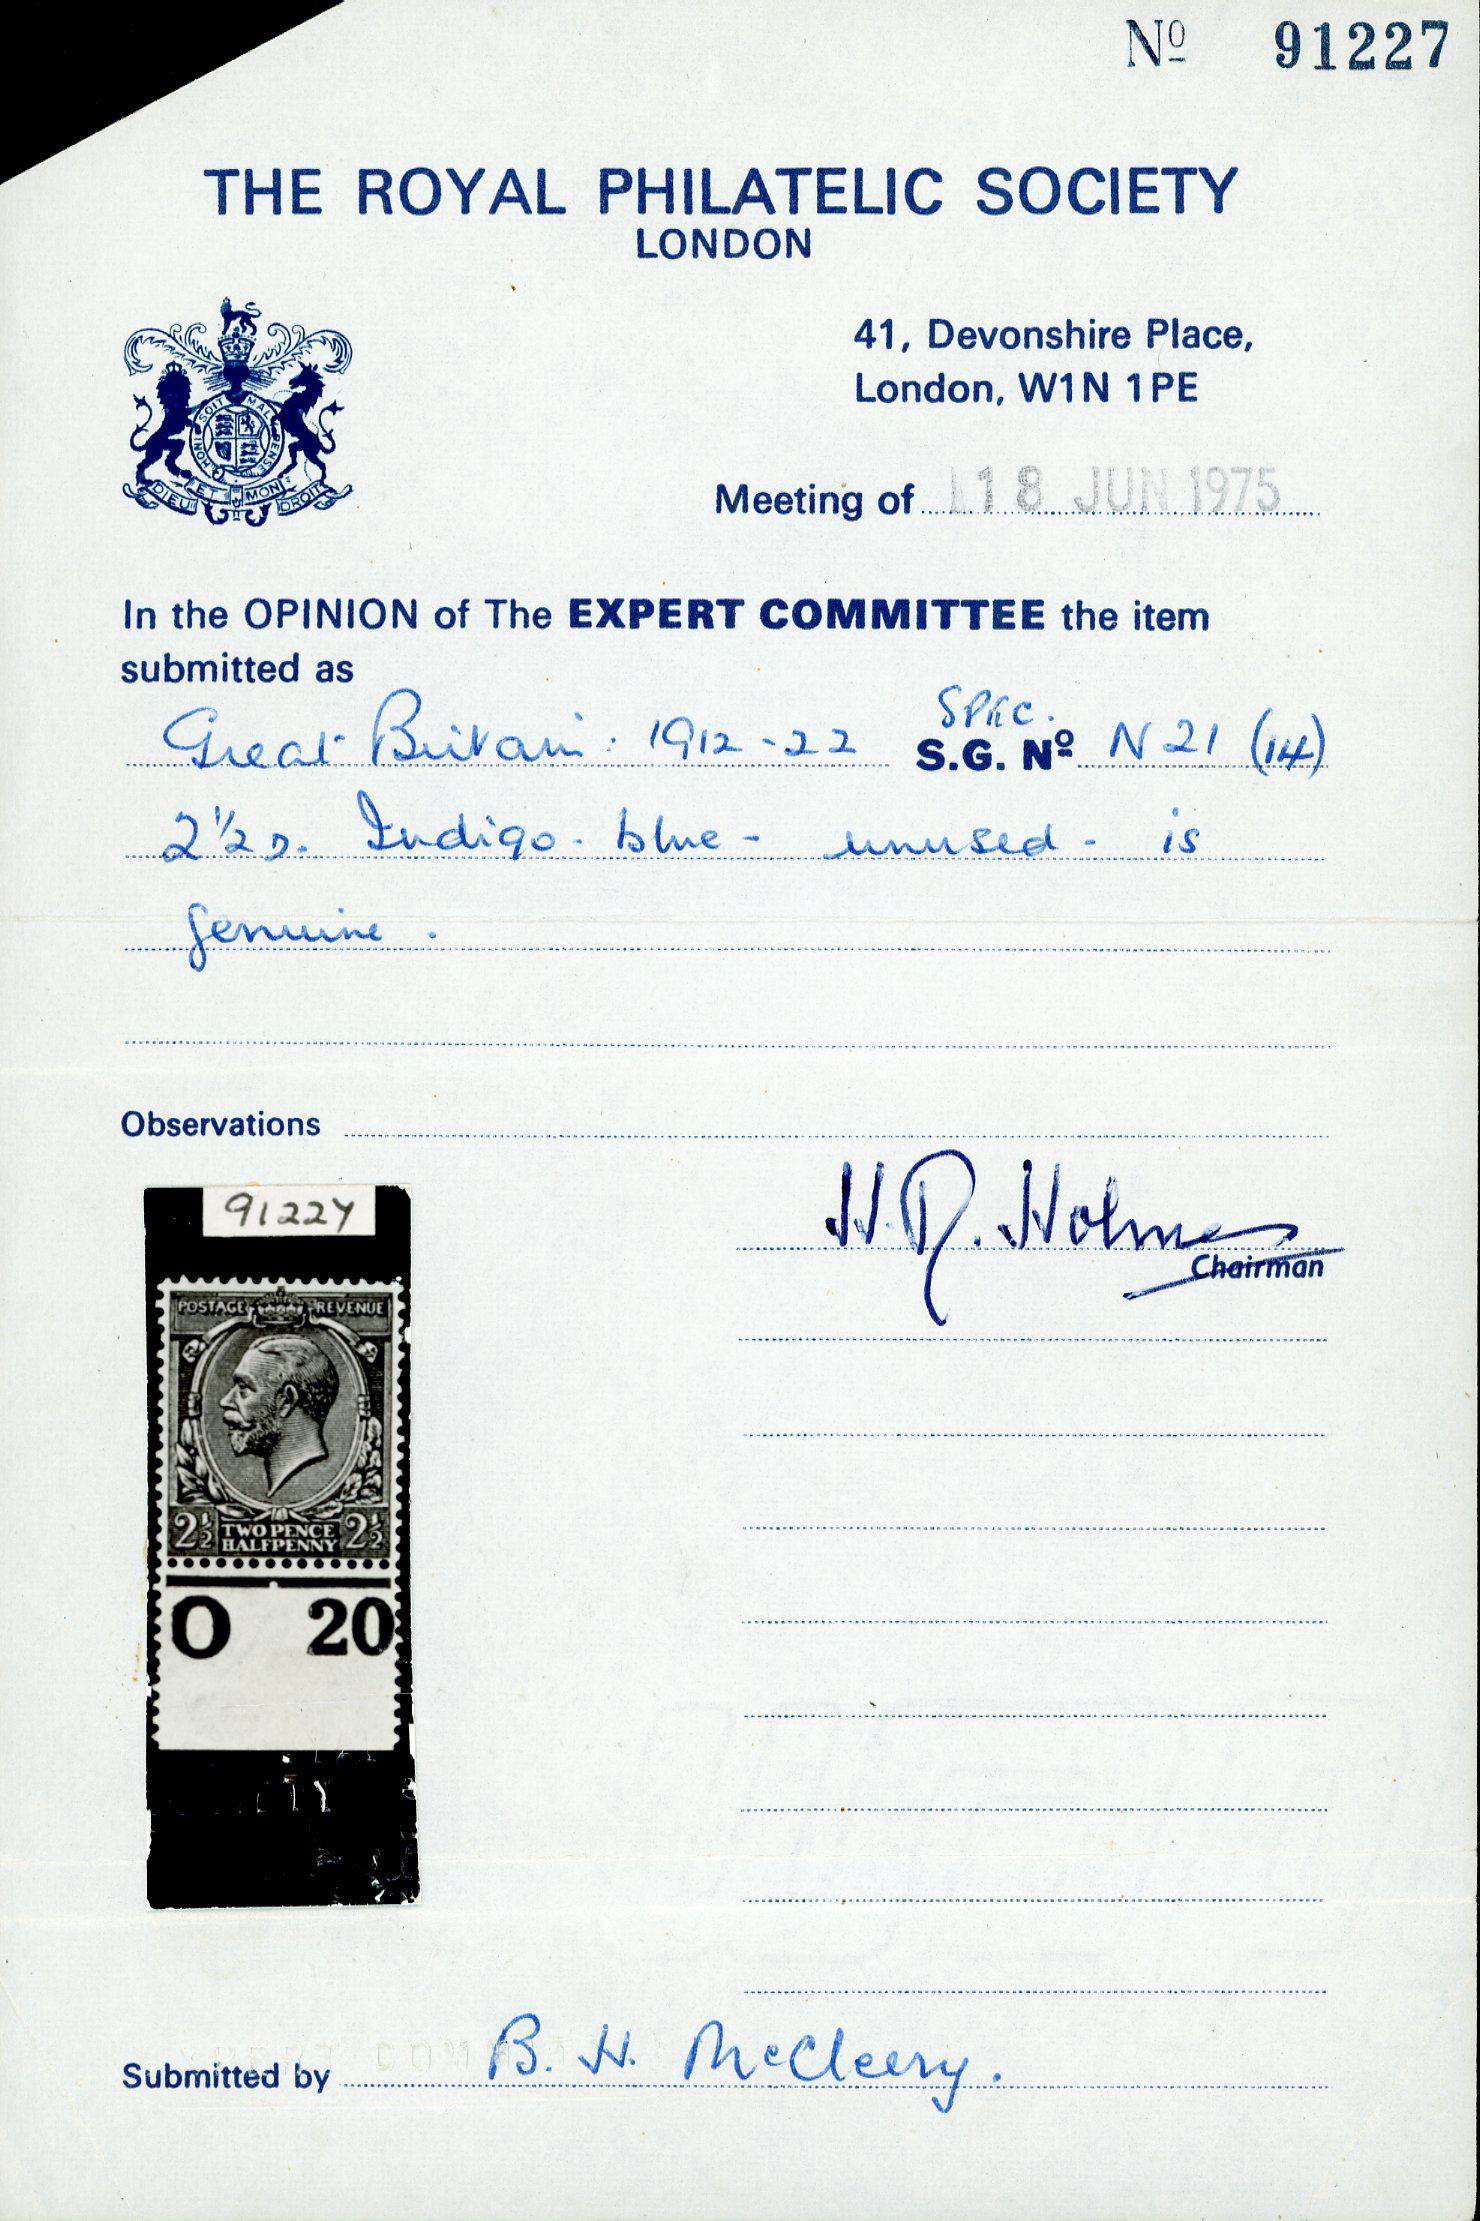 Nº 91227
THE ROYAL PHILATELIC SOCIETY
LONDON
41, Devonshire Place,
London, W1N 1PE
HONI SOIT MAL PENSE
DIEU ET MON DROIT
Meeting of 18 JUN 1975
In the OPINION of The EXPERT COMMITTEE the item
submitted as
Great Britain: 1912-22 SPEC. S.G. Nº N21 (14)
2½D. Indigo-blue - unused - is
genuine.
Observations
91227
H.R. Holmes
Chairman
POSTAGE REVENUE
2½ TWO PENCE HALFPENNY 2½
O 20
Submitted by B. H. McCleery.